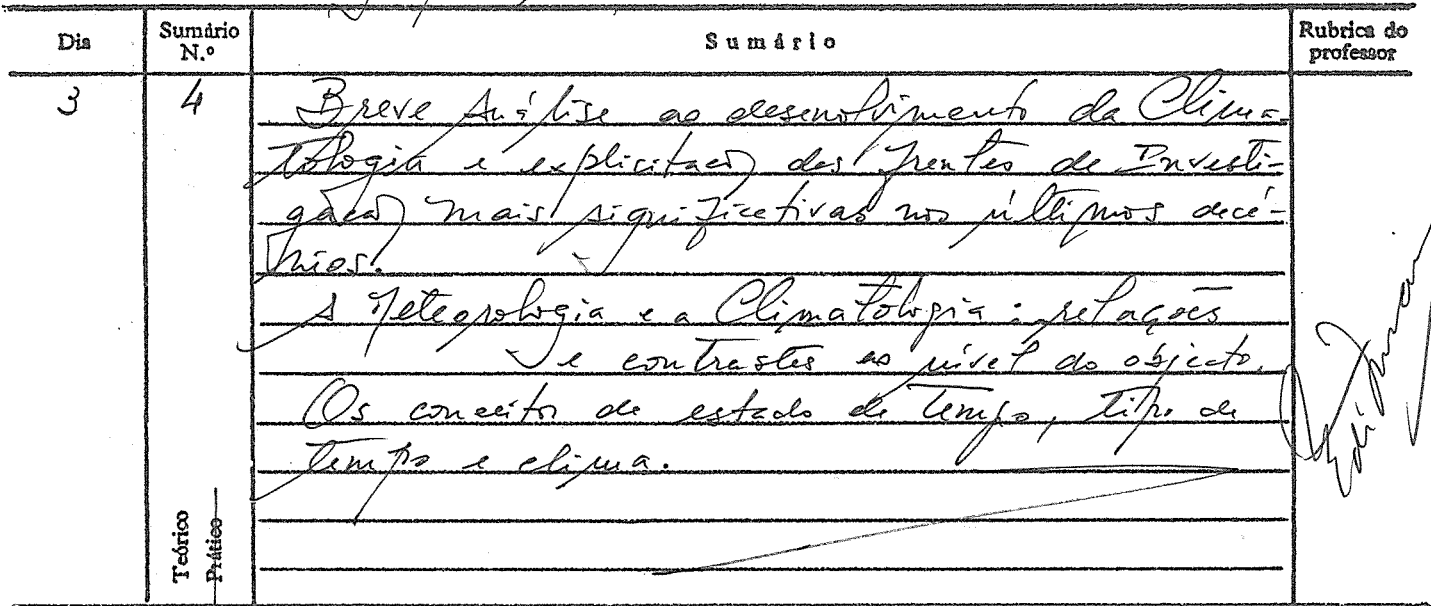 Dia Sumário N.º Sumário Rubrica do professor
3 4 Breve Análise ao desenvolvimento da Clima-
tologia e explicitação das frentes de Investi-
gação mais significativas nos últimos decé-
nios.
A Meteorologia e a Climatologia: relações
e contrastes ao nível do objecto.
Os conceitos de estado de tempo, tipo de
tempo e clima.
Teórico
Prático